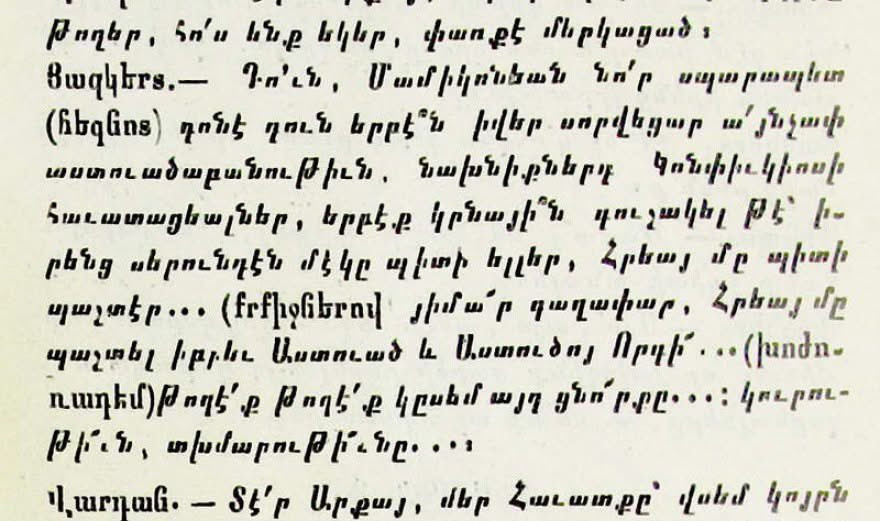 Թողեր, հո՛ս ենք եկեր, փառքէ մերկացած։
Յազկերտ.— Դո՛ւն, Մամիկոնեան նո՛ր սպարապետ
(հեգնոտ) դոնէ դուն երբէ՞ն իվեր սորվեցար ա՛յնչափ
աստուածաբանութիւն, նախնիքներդ Կոնփիւկիոսի
հաւատացեալներ, երբէք կրնայի՞ն գուշակել թէ՝ ի-
րենց սերունդէն մէկը պիտի ելլեր, Հրեայ մը պիտի
պաշտէր... (քրքիջներով) յիմա՜ր գաղափար, Հրեայ մը
պաշտել իբրեւ Աստուած և Աստուծոյ Որդի՜...(խոժո-
ռադէմ)Թողէ՛ք Թողէ՛ք կըսեմ այդ ցնո՛րքը...: կուրու-
թի՜ւն, տխմարութի՜ւնը...։
Վարդան. — Տէ՛ր Արքայ, մեր Հաւատքը՝ վսեմ կոյրն